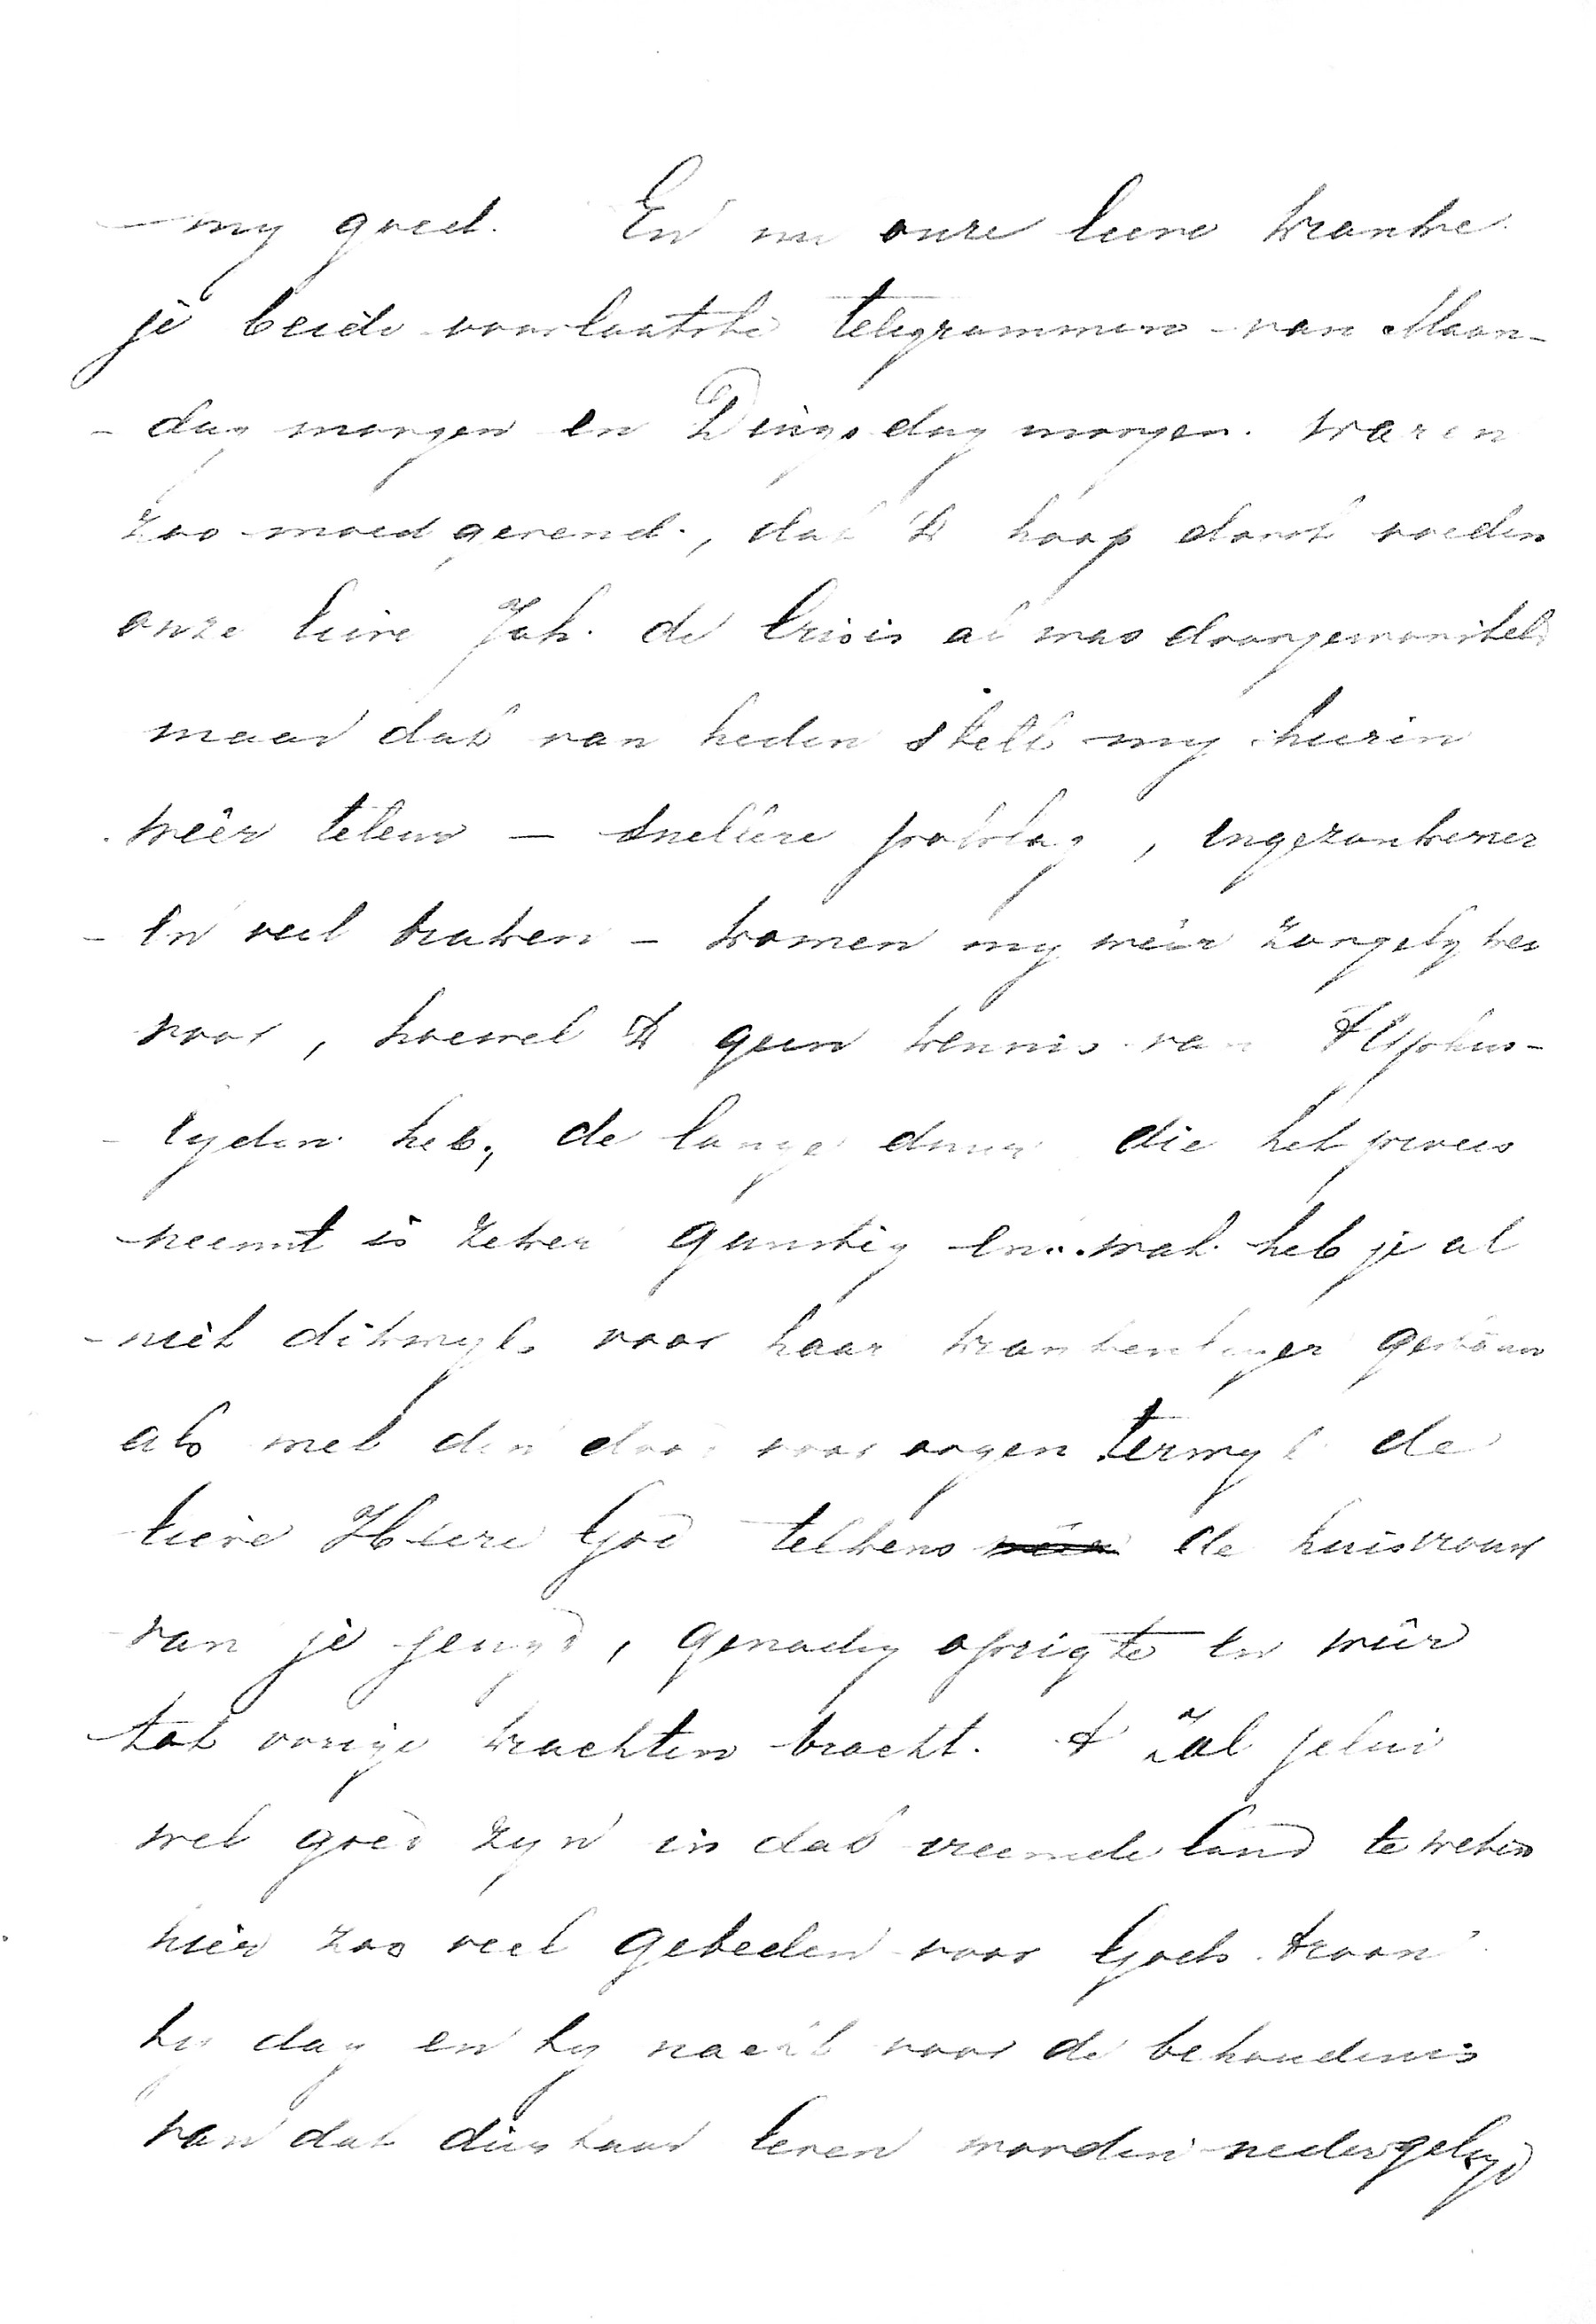 my goed. En nu onze lieve kranke
je beide voorlaatste telegrammen van Maan-
dag morgen en Dingsdag morgen. waren
zoo moedgevend, dat ik hoop dorst voeden
onze lieve Joh. de Crisis al was doorgeworsteld
maar dat van heden stelt my hierin
wêer teleur — snellere polslag, ingezonkener
en veel braken - komen my wéer zorgelyker
voor, hoewel ik geen kennis van Typhus-
lyden heb, de lange duur die het proces
neemt is zeker gunstig en.. wat heb je al
niet dikwyls voor haar krankenleger gestaan
als met den dood voor oogen terwyl de
lieve Heere God telkens de huisvrouw
van je jeugd, genadig oprigtte en wêer
tot vorige krachten bracht. 't Zal jelui
wel goed zyn in dat vreemde land te weten
hier zoo veel gebeden voor Gods troon
by dag en by nacht voor de behoudenis
van dat dierbaar leven worden nedergelegd